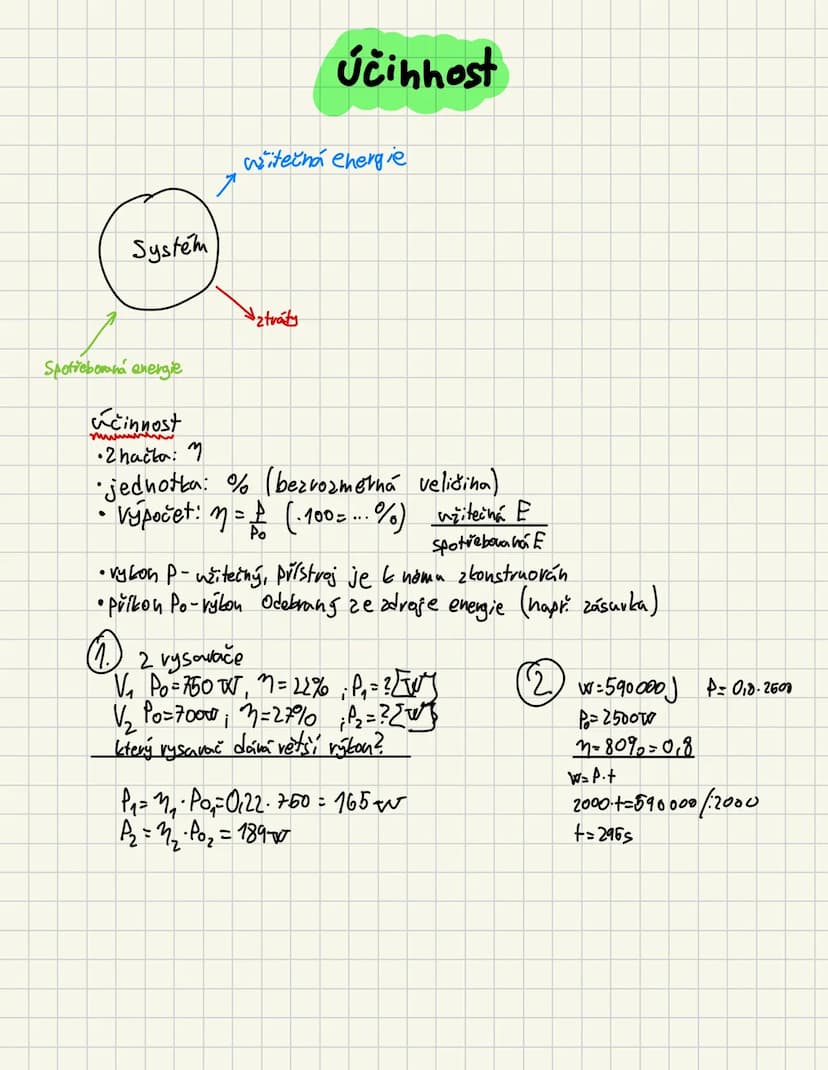 Účinnost
užitečná energie
Systém
ztráty
Spotřebovaná energie
účinnost
• Značka: η
• jednotka: % (bezrozměrná veličina)
• Výpočet: η = P/P₀ (·100 = ... %) užitečná E / spotřebovaná E
• výkon P - užitečný, přístroj je k němu zkonstruován
• příkon P₀ - výkon odebraný ze zdroje energie (např. zásuvka)
1. 2 vysavače
V₁ P₀=750 W, η=22% ; P₁=? [W]
V₂ P₀=700W ; η=27% ; P₂=? [W]
který vysavač dává větší výkon?
P₁ = η₁ · P₀₁ = 0,22 · 750 = 165 W
P₂ = η₂ · P₀₂ = 189 W
2 W=590000J P= 0,8·2500
P₀= 2500W
η=80%=0,8
W=P·t
2000·t=590000 /:2000
t=295s